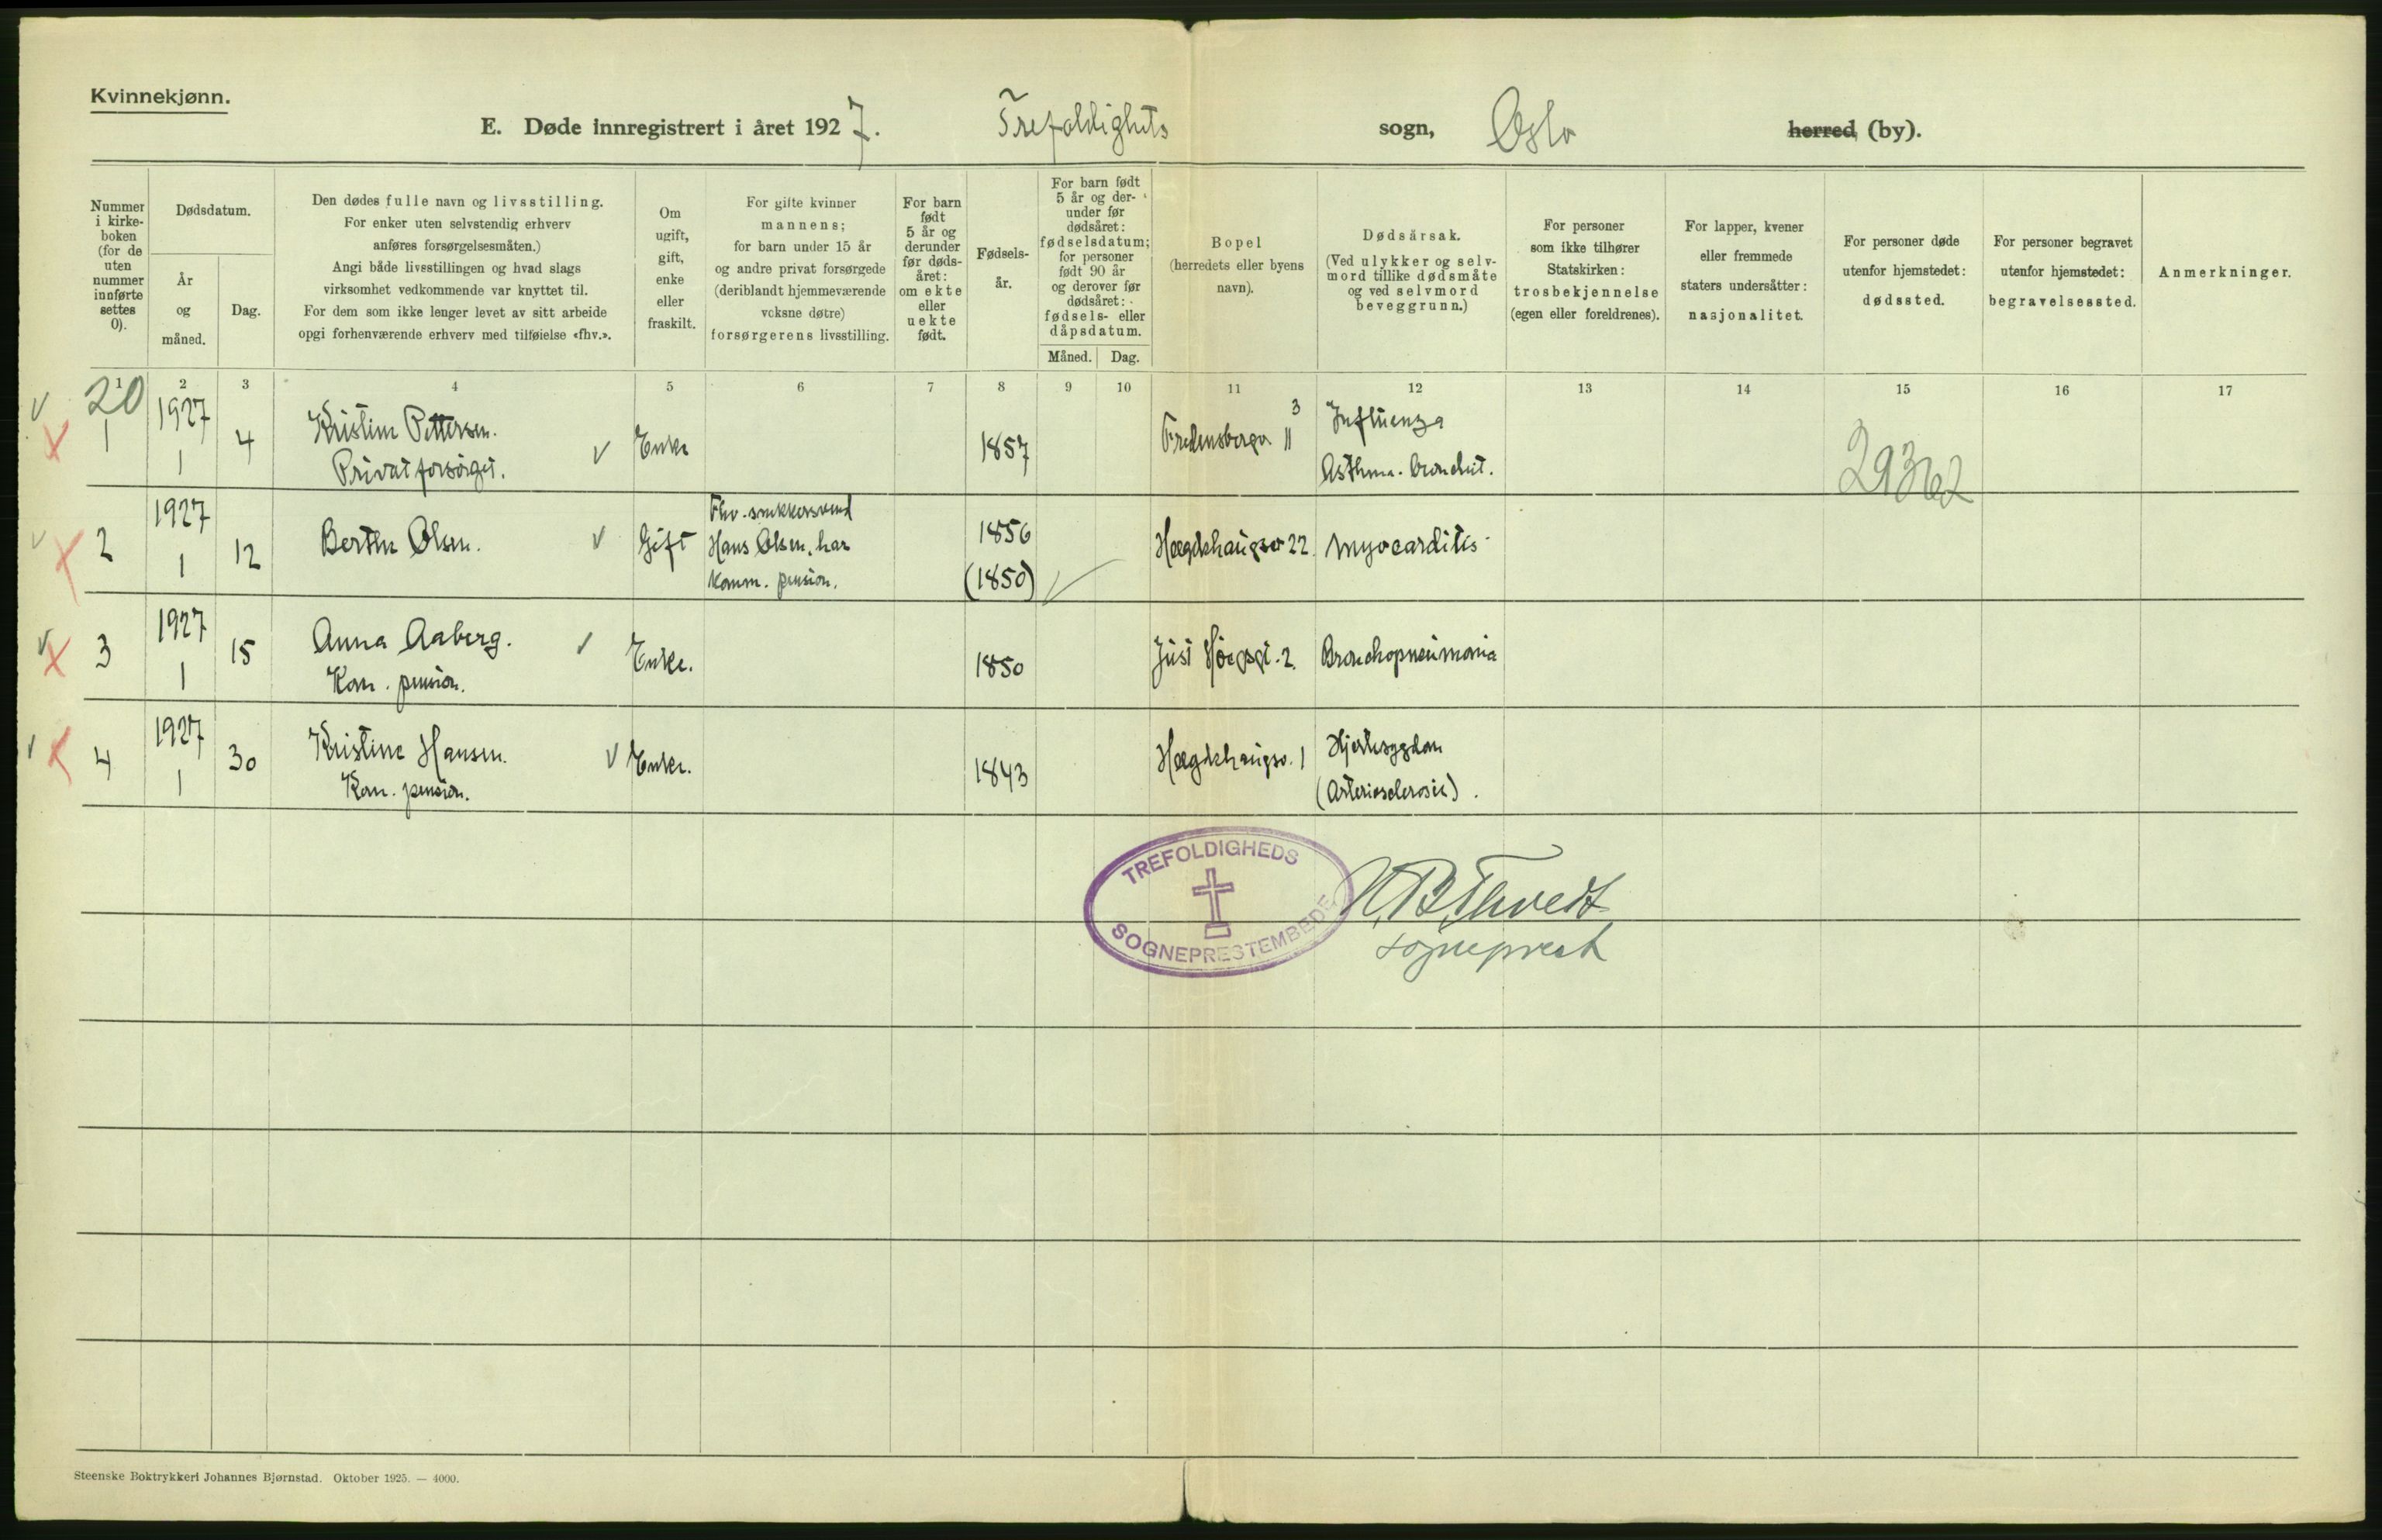 Kvinnekjønn.
E. Døde innregistrert i året 1927. Trefoldighets sogn, Oslo herred (by).
Nummer i kirkeboken (for de uten nummer innførte settes 0).
Dødsdatum.
År og måned.
Dag.
Den dødes fulle navn og livsstilling.
For enker uten selvstendig erhverv
anføres forsørgelsesmåten.)
Angi både livsstillingen og hvad slags
virksomhet vedkommende var knyttet til.
For dem som ikke lenger levet av sitt arbeide
opgi forhenværende erhverv med tilføielse «fhv.».
Om
ugift,
gift,
enke
eller
fraskilt.
For gifte kvinner
mannens;
for barn under 15 år
og andre privat forsørgede
(deriblandt hjemmeværende
voksne døtre)
forsørgerens livsstilling.
For barn
født
5 år og
derunder
før døds-
året:
om ekte
eller
uekte
født.
Fødsels-
år.
For barn født
5 år og der-
under før
dødsåret:
fødselsdatum;
for personer
født 90 år
og derover før
dødsåret:
fødsels- eller
dåpsdatum.
Måned. Dag.
Bopel
(herredets eller byens
navn).
Dødsårsak.
(Ved ulykker og selv-
mord tillike dødsmåte
og ved selvmord
beveggrunn.)
For personer
som ikke tilhører
Statskirken:
trosbekjennelse
(egen eller foreldrenes).
For lapper, kvener
eller fremmede
staters undersåtter:
nasjonalitet.
For personer døde
utenfor hjemstedet:
dødssted.
For personer begravet
utenfor hjemstedet:
begravelsessted.
Anmerkninger.
1 2 3 4 5 6 7 8 9 10 11 12 13 14 15 16 17
20
1 1927 1 4 Kristine Pettersen. Enke 1857 Influenza
Privat forsørget. Asthma. bronchit.
29362
2 1927 1 12 Berthe Olsen. Gift Fhv. snekkersvend
Hans Olsen, har
komm. pension.
1856
(1850)
Hægdehaugsv 22. Myocarditis
3 1927 1 15 Anna Aaberg. Enke. 1850 Just Høegsgt. 2. Bronchopneumonia
Kom. pension.
4 1927 1 30 Kristine Hansen. Enke. 1843 Hægdehaugsv. 1 Hjertesygdom
Kom. pension. (Arteriosclerosis).
TREFOLDIGHEDS
SOGNEPRESTEMBEDE
sogneprest
Steenske Boktrykkeri Johannes Bjørnstad. Oktober 1925. — 4000.